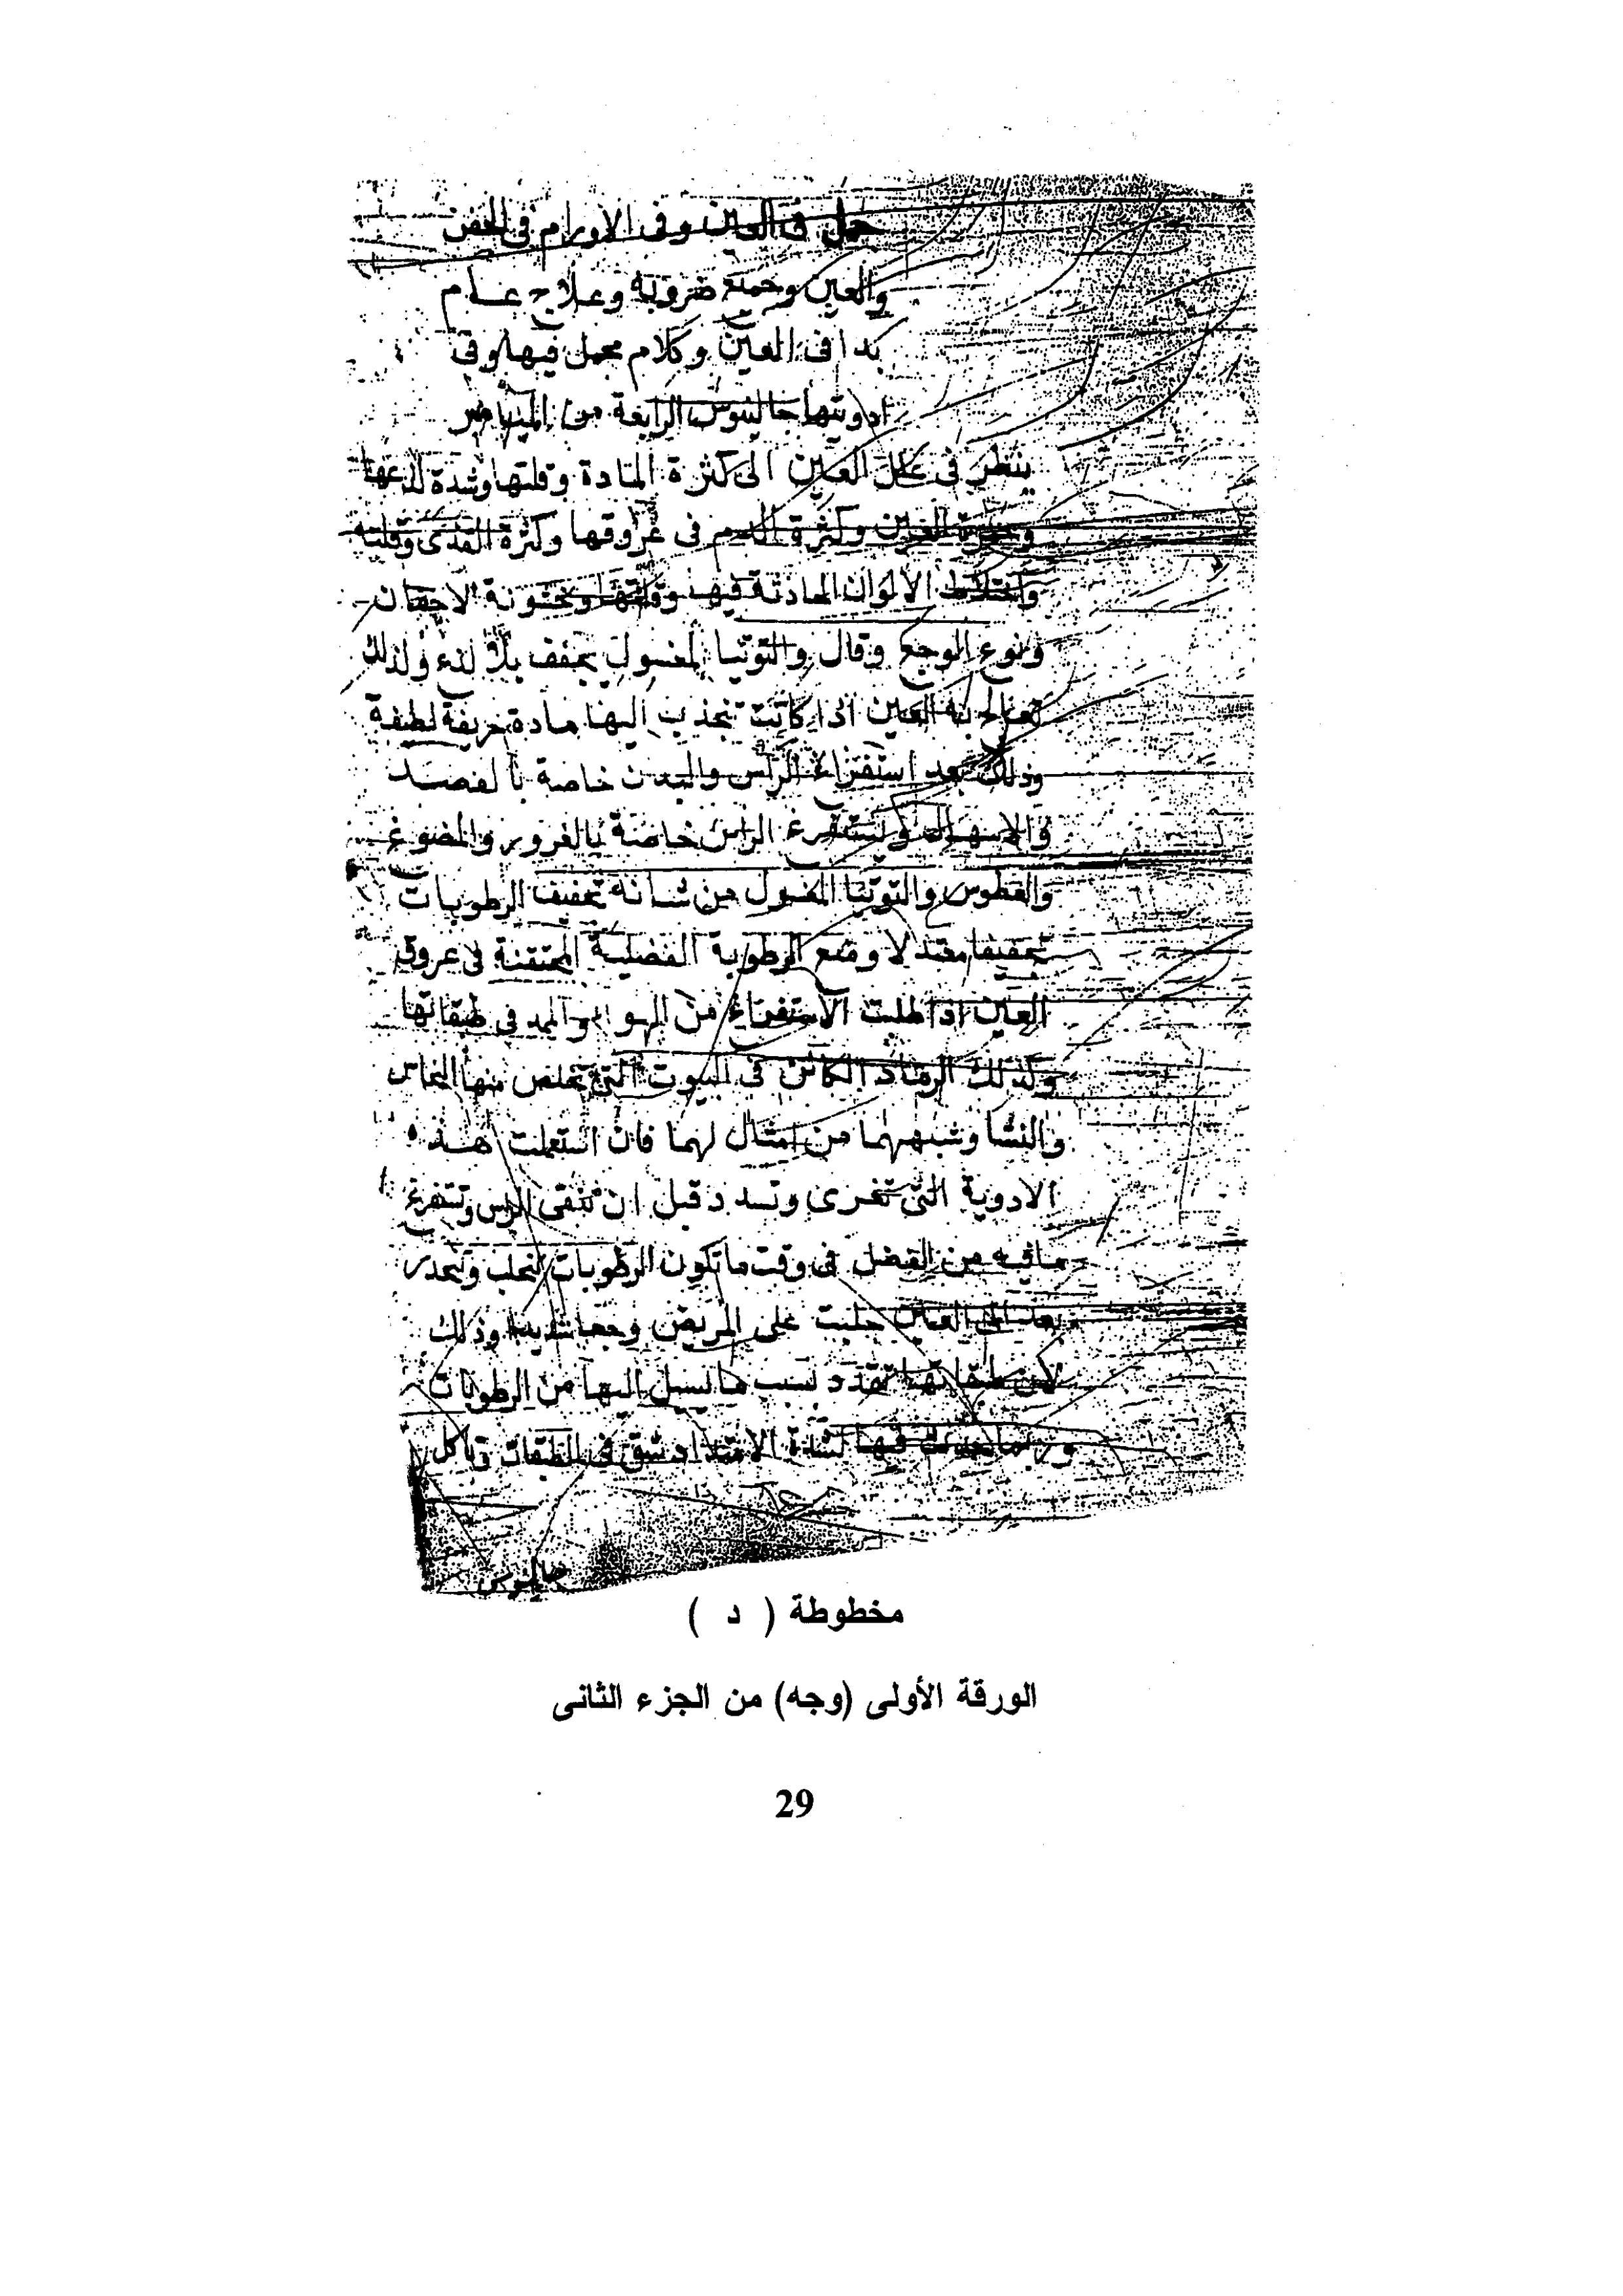 جمل فى العين وفى الاورام فى الجفن
والعين وجميع ضروبه وعلاج عام
فى العين وكلام مجمل فيها وفى
ادويتها جالينوس الرابعة من الميامر
ينظر فى علل العين الى كثرة المادة وقلتها وشدة لذعها
وحمرة العين وكثرة الدم فى عروقها وكثرة القذى وقلته
واختلاط الالوان الحادثة فيها وقلتها وخشونة الاجفان
ونوع الوجع وقال والتوتيا المغسول يجفف بلا لذع ولذلك
تعالج به العين اذا كانت تنجذب اليها مادة حريفة لطيفة
وذلك بعد استفراغ الراس والبدن خاصة بالفصد
والاسهال ويستفرغ الراس خاصة بالغرور والمضوغ
والعطوس والتوتيا المغسول من شانه تجفيف الرطوبات
تجفيفا معتدلا ومنع الرطوبة الفضلية المحتقنة فى عروق
العين اذا طلبت الاستفراغ من فى طبقاتها
وكذلك الرماد الكائن فى البيوت التى تخلص منها النحاس
والنشا وشبههما من امثال لهما فان استعملت هذه
الادوية التى تغرى وتسدد قبل ان تنقى الراس وتستفرغ
ما فيه من الفضل فى وقت ما تكون الرطوبات تتحلب وتنحدر
بعد الى العين جلبت على المريض وجعا شديدا وذلك
لان طبقاتها تمدد بسبب ما يسيل اليها من الرطوبات
وربما حدث فيها لشدة الامتداد شق فى الطبقات وتاكل
جالينوس
مخطوطة ( د )
الورقة الأولى (وجه) من الجزء الثانى
29